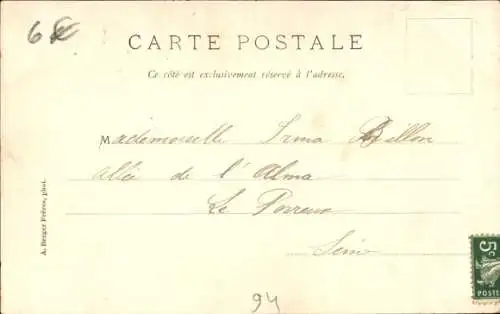 6€
CARTE POSTALE
Ce côté est exclusivement réservé à l'adresse.
Mademoiselle Irma Billon
allée de l'Alma
Le Perreux
Seine
A. Berger Frères, phot.
5c
POSTES
94